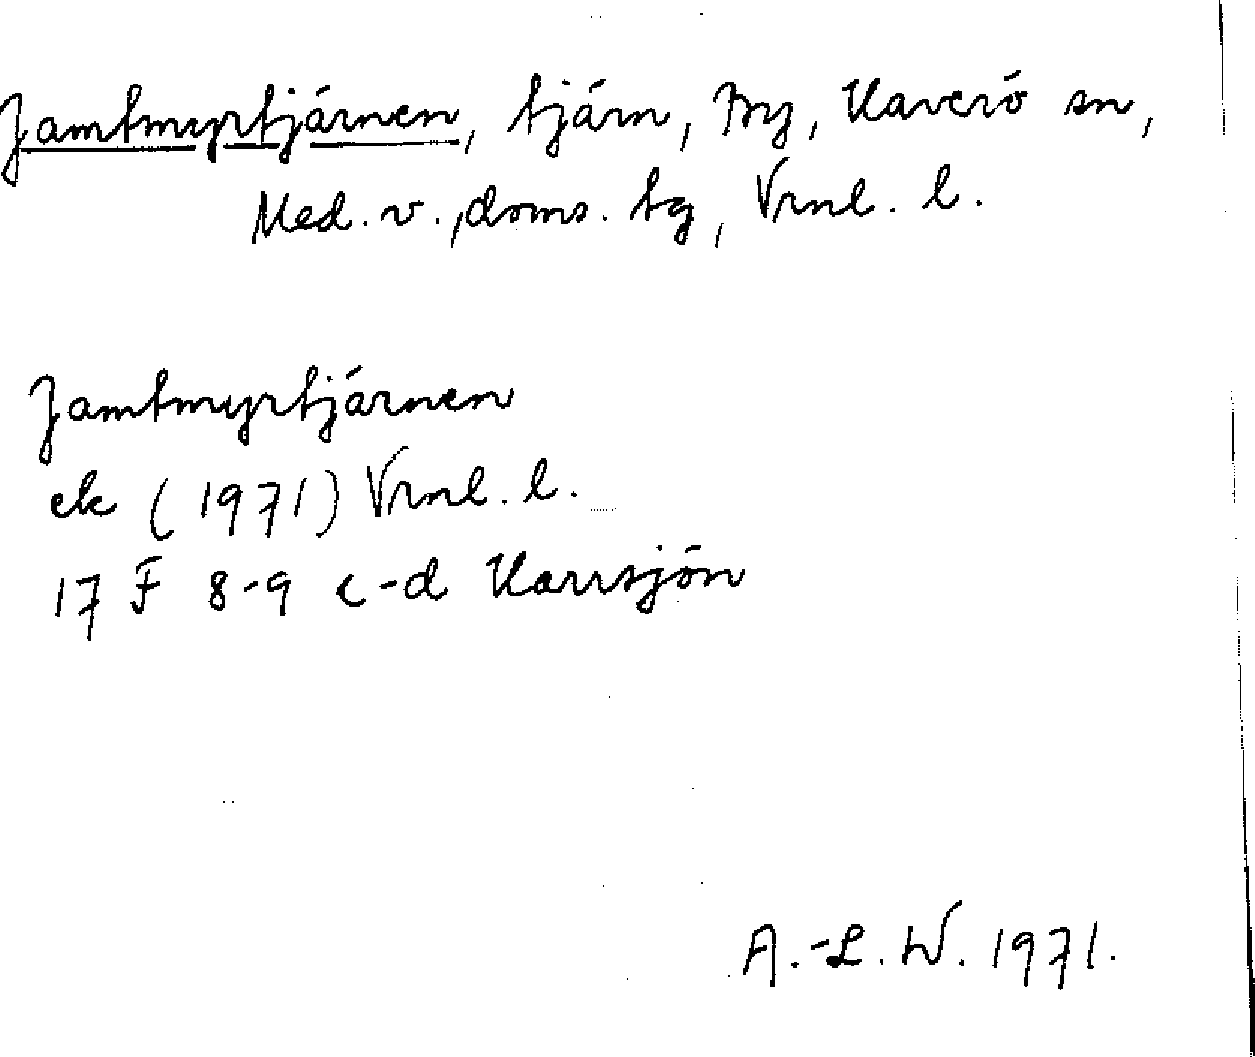 Jamtmyrtjärnen, tjärn, By, Haverö sn,
Med. v., doms. tg, Vrnl. l.
Jamtmyrtjärnen
ek (1971) Vrnl. l.
17 F 8-9 c-d Harrsjön
A.-L. W. 1971.